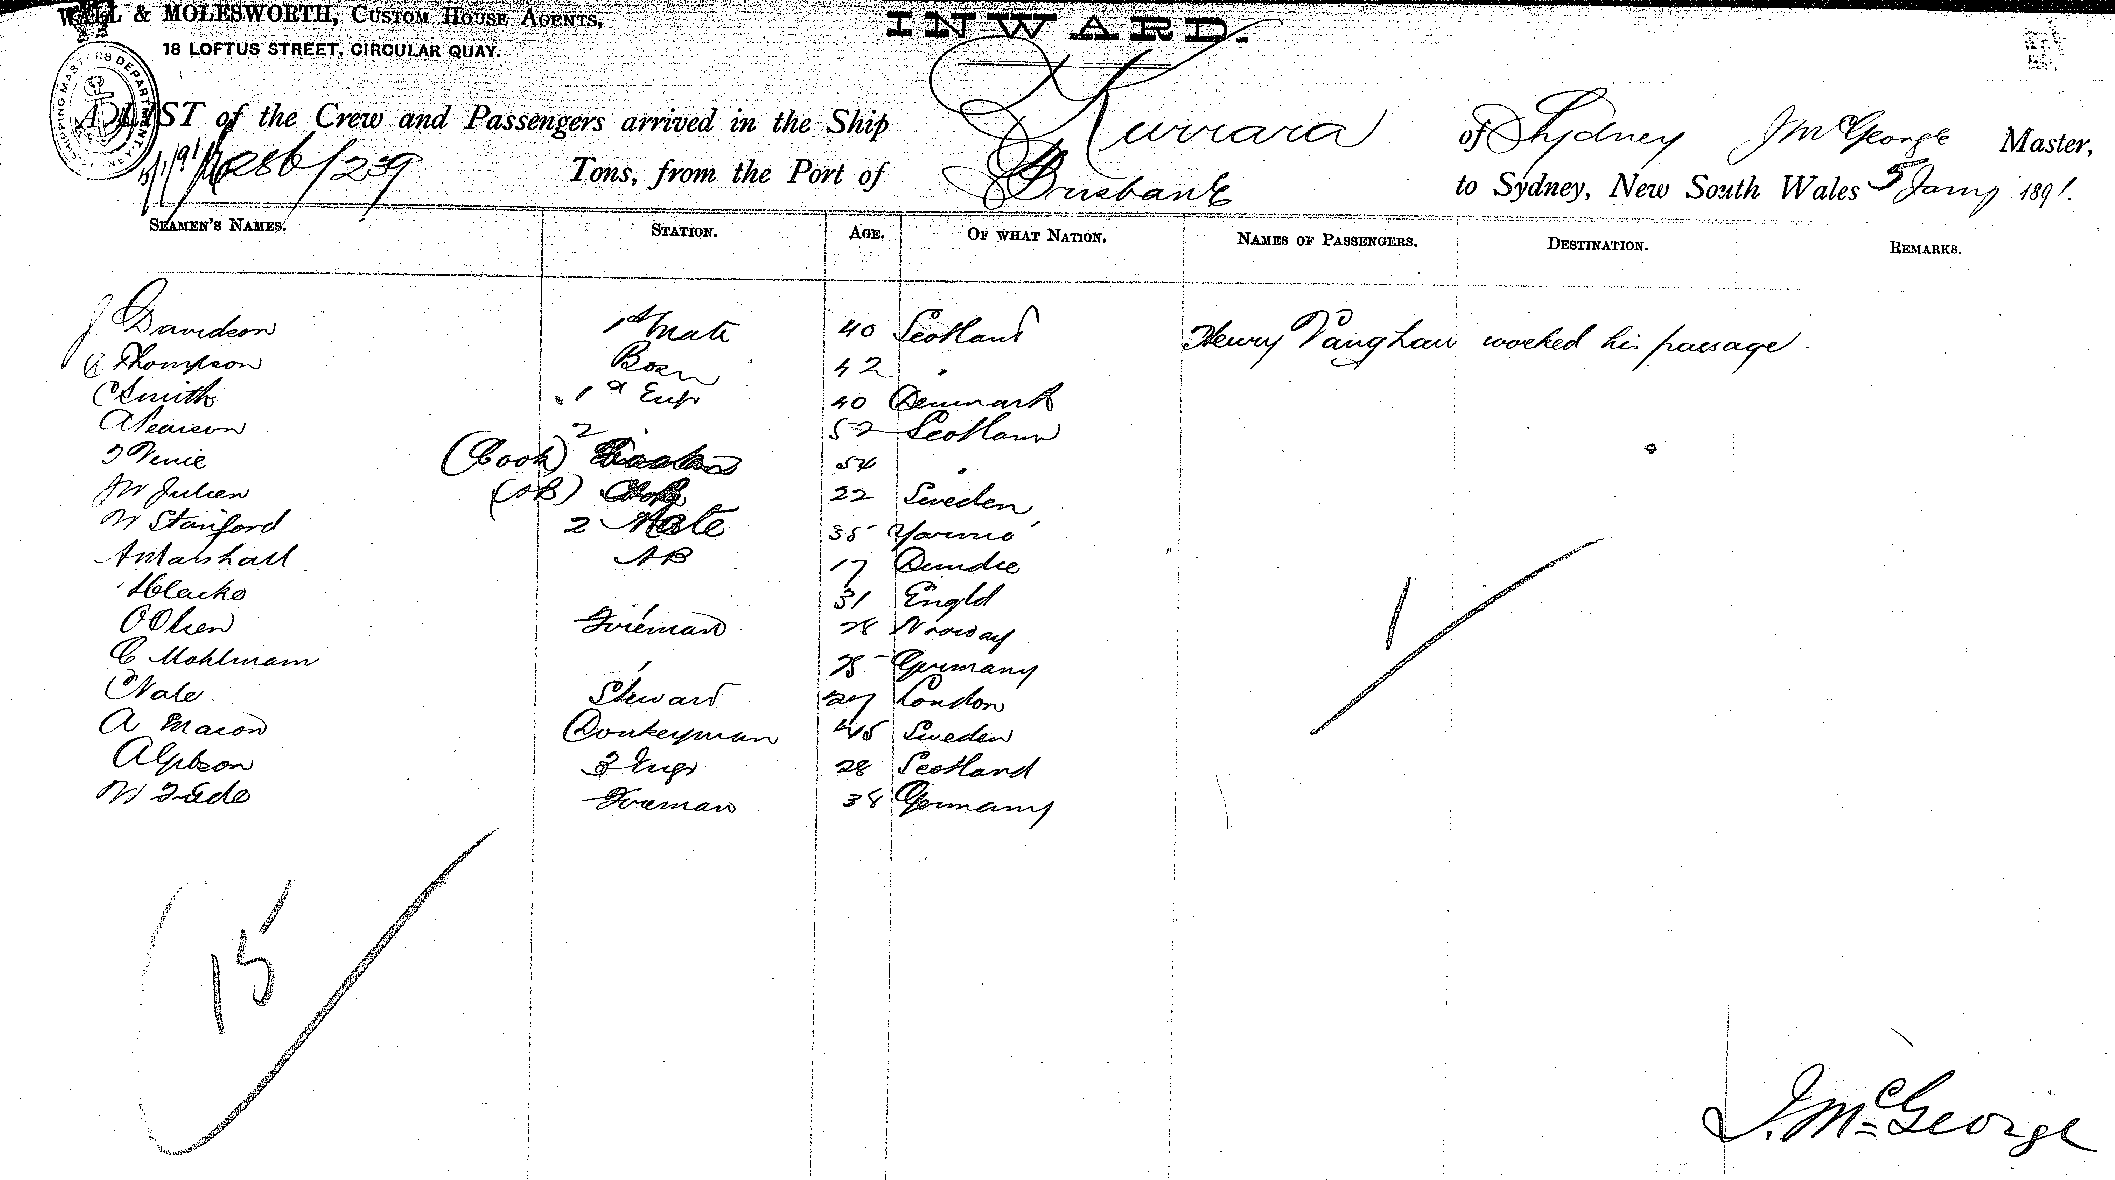 WALL & MOLESWORTH, CUSTOM HOUSE AGENTS,
18 LOFTUS STREET, CIRCULAR QUAY.
INWARD.
A LIST of the Crew and Passengers arrived in the Ship Kurrara of Sydney J McGeorge Master,
286/239 Tons, from the Port of Brisbane to Sydney, New South Wales 5 Jany 1891.
SEAMEN'S NAMES. STATION. AGE. OF WHAT NATION. NAMES OF PASSENGERS. DESTINATION. REMARKS.
J Davidson 1st Mate 40 Scotland Henry Vaughan worked his passage
Thompson Bosn 42 "
C Smith 1st Engr 40 Denmark
A Pearson 2 52 Scotland
(Cook) 54 "
Julien (AB) 22 Sweden
W Stanford 2 Mate 35
A Marshall AB 17 Dundee
31 Engld
O Olsen Fireman 28 Norway
C Mohlmann " 25 Germany
C Vale Steward 27 London
A Macon Donkeyman 45 Sweden
A Gibson 3 Engr 28 Scotland
W Fireman 38 Germany
1
15
J. McGeorge